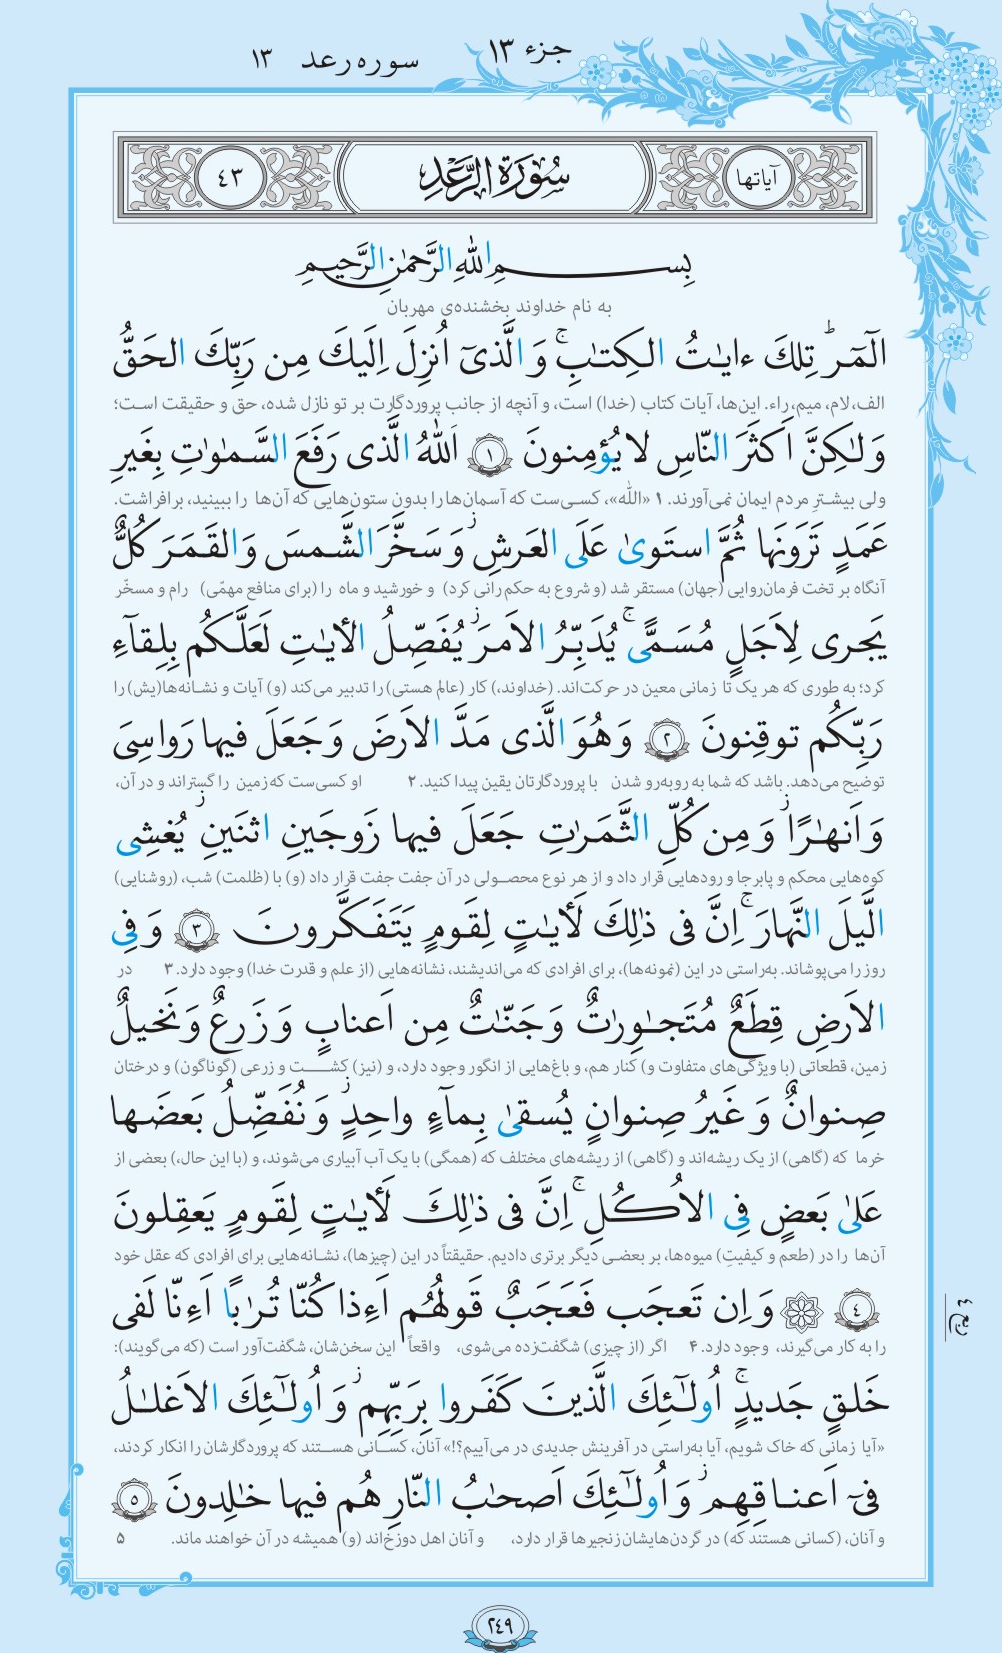 جزء ۱۳
سوره رعد ۱۳
آیاتها
سُورَةُ الرَّعْدِ
٤٣
بِسمِ اللهِ الرَّحمٰنِ الرَّحیمِ
به نام خداوند بخشنده‌ی مهربان
الٓمٓرٰ ۚ تِلكَ ءایٰتُ الكِتٰبِ ۗ وَ الَّذیٓ اُنزِلَ اِلَیكَ مِن رَبِّكَ الحَقُّ
الف، لام، میم، راء. این‌ها، آیات کتاب (خدا) است، و آنچه از جانب پروردگارت بر تو نازل شده، حق و حقیقت است؛
وَ لٰكِنَّ اَكثَرَ النّاسِ لا یُؤمِنونَ ﴿١﴾ اَللهُ الَّذی رَفَعَ السَّمٰوٰتِ بِغَیرِ
ولی بیشترِ مردم ایمان نمی‌آورند. ۱ «الله»، کسی‌ست که آسمان‌ها را بدون ستون‌هایی که آن‌ها را ببینید، برافراشت.
عَمَدٍ تَرَونَها ثُمَّ استَویٰ عَلَی العَرشِ ز وَ سَخَّرَ الشَّمسَ وَ القَمَرَ كُلٌّ
آنگاه بر تخت فرمان‌روایی (جهان) مستقر شد (و شروع به حکم‌رانی کرد) و خورشید و ماه را (برای منافع مهمّی) رام و مسخّر
یَجری لِاَجَلٍ مُسَمًّی ۚ یُدَبِّرُ الاَمرَ ز یُفَصِّلُ الأیٰتِ لَعَلَّكُم بِلِقآءِ
کرد؛ به طوری که هر یک تا زمانی معین در حرکت‌اند. (خداوند،) کار (عالم هستی) را تدبیر می‌کند (و) آیات و نشانه‌ها(یش) را
رَبِّكُم توقِنونَ ﴿٢﴾ وَ هُوَ الَّذی مَدَّ الاَرضَ وَ جَعَلَ فیها رَواسِیَ
توضیح می‌دهد. باشد که شما به روبه‌رو شدن با پروردگارتان یقین پیدا کنید. ۲ او کسی‌ست که زمین را گستراند و در آن،
وَ اَنهٰرًا ز وَ مِن كُلِّ الثَّمَرٰتِ جَعَلَ فیها زَوجَینِ اثنَینِ ز یُغشِی
کوه‌هایی محکم و پابرجا و رودهایی قرار داد و از هر نوع محصولی در آن جفت جفت قرار داد (و) با (ظلمت) شب، (روشنایی)
الَّیلَ النَّهارَ ۚ اِنَّ فی ذٰلِكَ لَأیٰتٍ لِقَومٍ یَتَفَكَّرونَ ﴿٣﴾ وَ فِی
روز را می‌پوشاند. به‌راستی در این (نمونه‌ها)، برای افرادی که می‌اندیشند، نشانه‌هایی (از علم و قدرت خدا) وجود دارد. ۳ در
الاَرضِ قِطَعٌ مُتَجٰوِرٰتٌ وَ جَنّٰتٌ مِن اَعنابٍ وَ زَرعٌ وَ نَخیلٌ
زمین، قطعاتی (با ویژگی‌های متفاوت و) کنار هم، و باغ‌هایی از انگور وجود دارد، و (نیز) کشت و زرعی (گوناگون) و درختان
صِنوانٌ وَ غَیرُ صِنوانٍ یُسقیٰ بِمآءٍ واحِدٍ ز وَ نُفَضِّلُ بَعضَها
خرما که (گاهی) از یک ریشه‌اند و (گاهی) از ریشه‌های مختلف که (همگی) با یک آب آبیاری می‌شوند، و (با این حال،) بعضی از
عَلیٰ بَعضٍ فِی الاُكُلِ ۚ اِنَّ فی ذٰلِكَ لَأیٰتٍ لِقَومٍ یَعقِلونَ
آن‌ها را در (طعم و کیفیتِ) میوه‌ها، بر بعضی دیگر برتری دادیم. حقیقتاً در این (چیزها)، نشانه‌هایی برای افرادی که عقل خود
﴿٤﴾ وَ اِن تَعجَب فَعَجَبٌ قَولُهُم اَءِذا كُنّا تُرٰبًا اَءِنّا لَفی
را به کار می‌گیرند، وجود دارد. ۴ اگر (از چیزی) شگفت‌زده می‌شوی، واقعاً این سخن‌شان، شگفت‌آور است (که می‌گویند):
ربع ٤
خَلقٍ جَدیدٍ ۗ اُولٰٓئِكَ الَّذینَ كَفَروا بِرَبِّهِم ز وَ اُولٰٓئِكَ الاَغلٰلُ
«آیا زمانی که خاک شویم، آیا به‌راستی در آفرینش جدیدی در می‌آییم؟!» آنان، کسانی هستند که پروردگارشان را انکار کردند،
فیٓ اَعناقِهِم ز وَ اُولٰٓئِكَ اَصحٰبُ النّارِ هُم فیها خٰلِدونَ ﴿٥﴾
و آنان، (کسانی هستند که) در گردن‌هایشان زنجیرها قرار دارد، و آنان اهل دوزخ‌اند (و) همیشه در آن خواهند ماند. ۵
٢٤٩